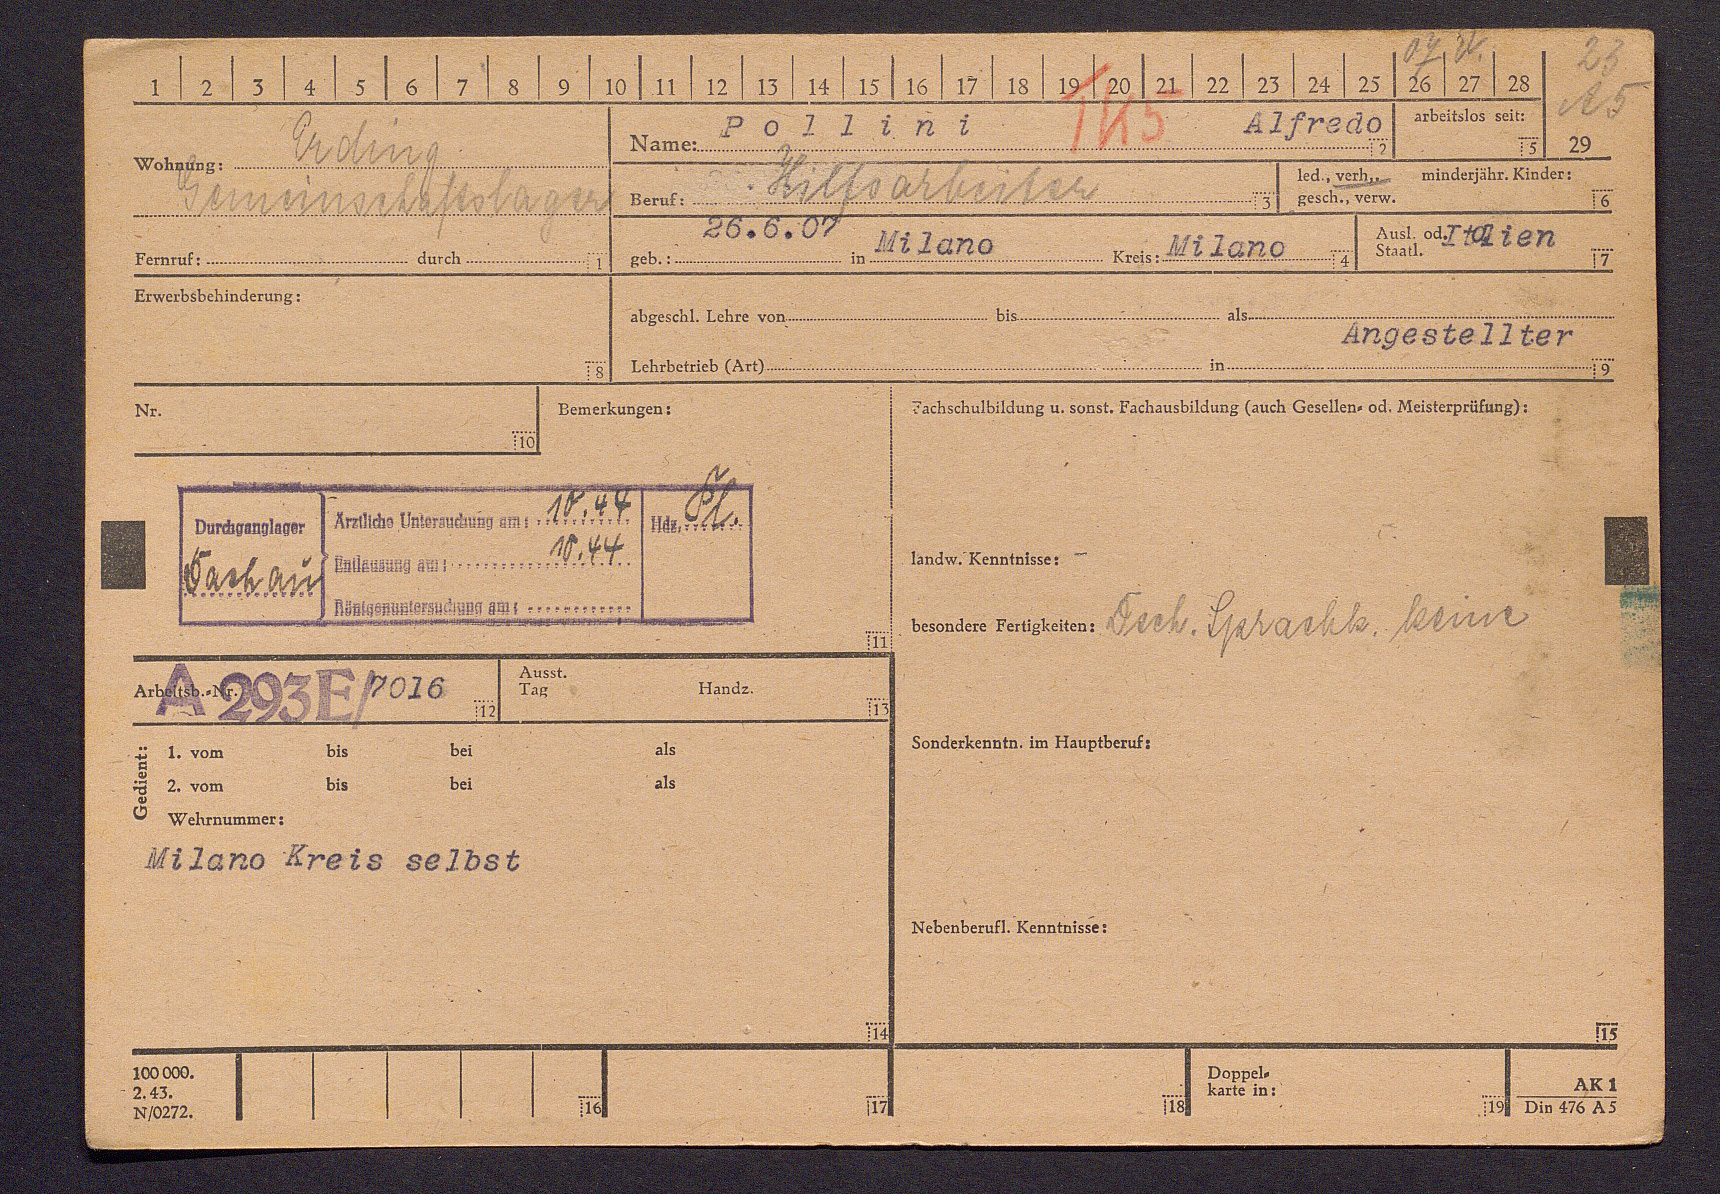 07 V. 23
1 2 3 4 5 6 7 8 9 10 11 12 13 14 15 16 17 18 19 20 21 22 23 24 25 26 27 28
A5
TK5
Wohnung: Erding
Gemeinschaftslager
Fernruf: durch 1
Name: Pollini Alfredo 2
arbeitslos seit: 5 29
Beruf: Hilfsarbeiter 3
led., verh., minderjähr. Kinder:
gesch., verw. 6
geb.: 26.6.07 in Milano Kreis: Milano 4
Ausl. od. Italien
Staatl. 7
Erwerbsbehinderung:
8
abgeschl. Lehre von bis als
Angestellter
Lehrbetrieb (Art) in 9
Nr.
10
Bemerkungen:
Durchganglager
Dachau
Ärztliche Untersuchung am: 10.44
Entlausung am: 10.44
Röntgenuntersuchung am:
Hdz.
11
Fachschulbildung u. sonst. Fachausbildung (auch Gesellen- od. Meisterprüfung):
landw. Kenntnisse: –
besondere Fertigkeiten: Dsch. Sprachk. keine
Arbeitsb.-Nr. A 293E/7016 12
Ausst.
Tag Handz. 13
Gedient:
1. vom bis bei als
2. vom bis bei als
Wehrnummer:
Milano Kreis selbst
14
Sonderkenntn. im Hauptberuf:
Nebenberufl. Kenntnisse:
15
100 000.
2. 43.
N/0272.
16
17
18
Doppel-
karte in:
19
AK 1
Din 476 A 5